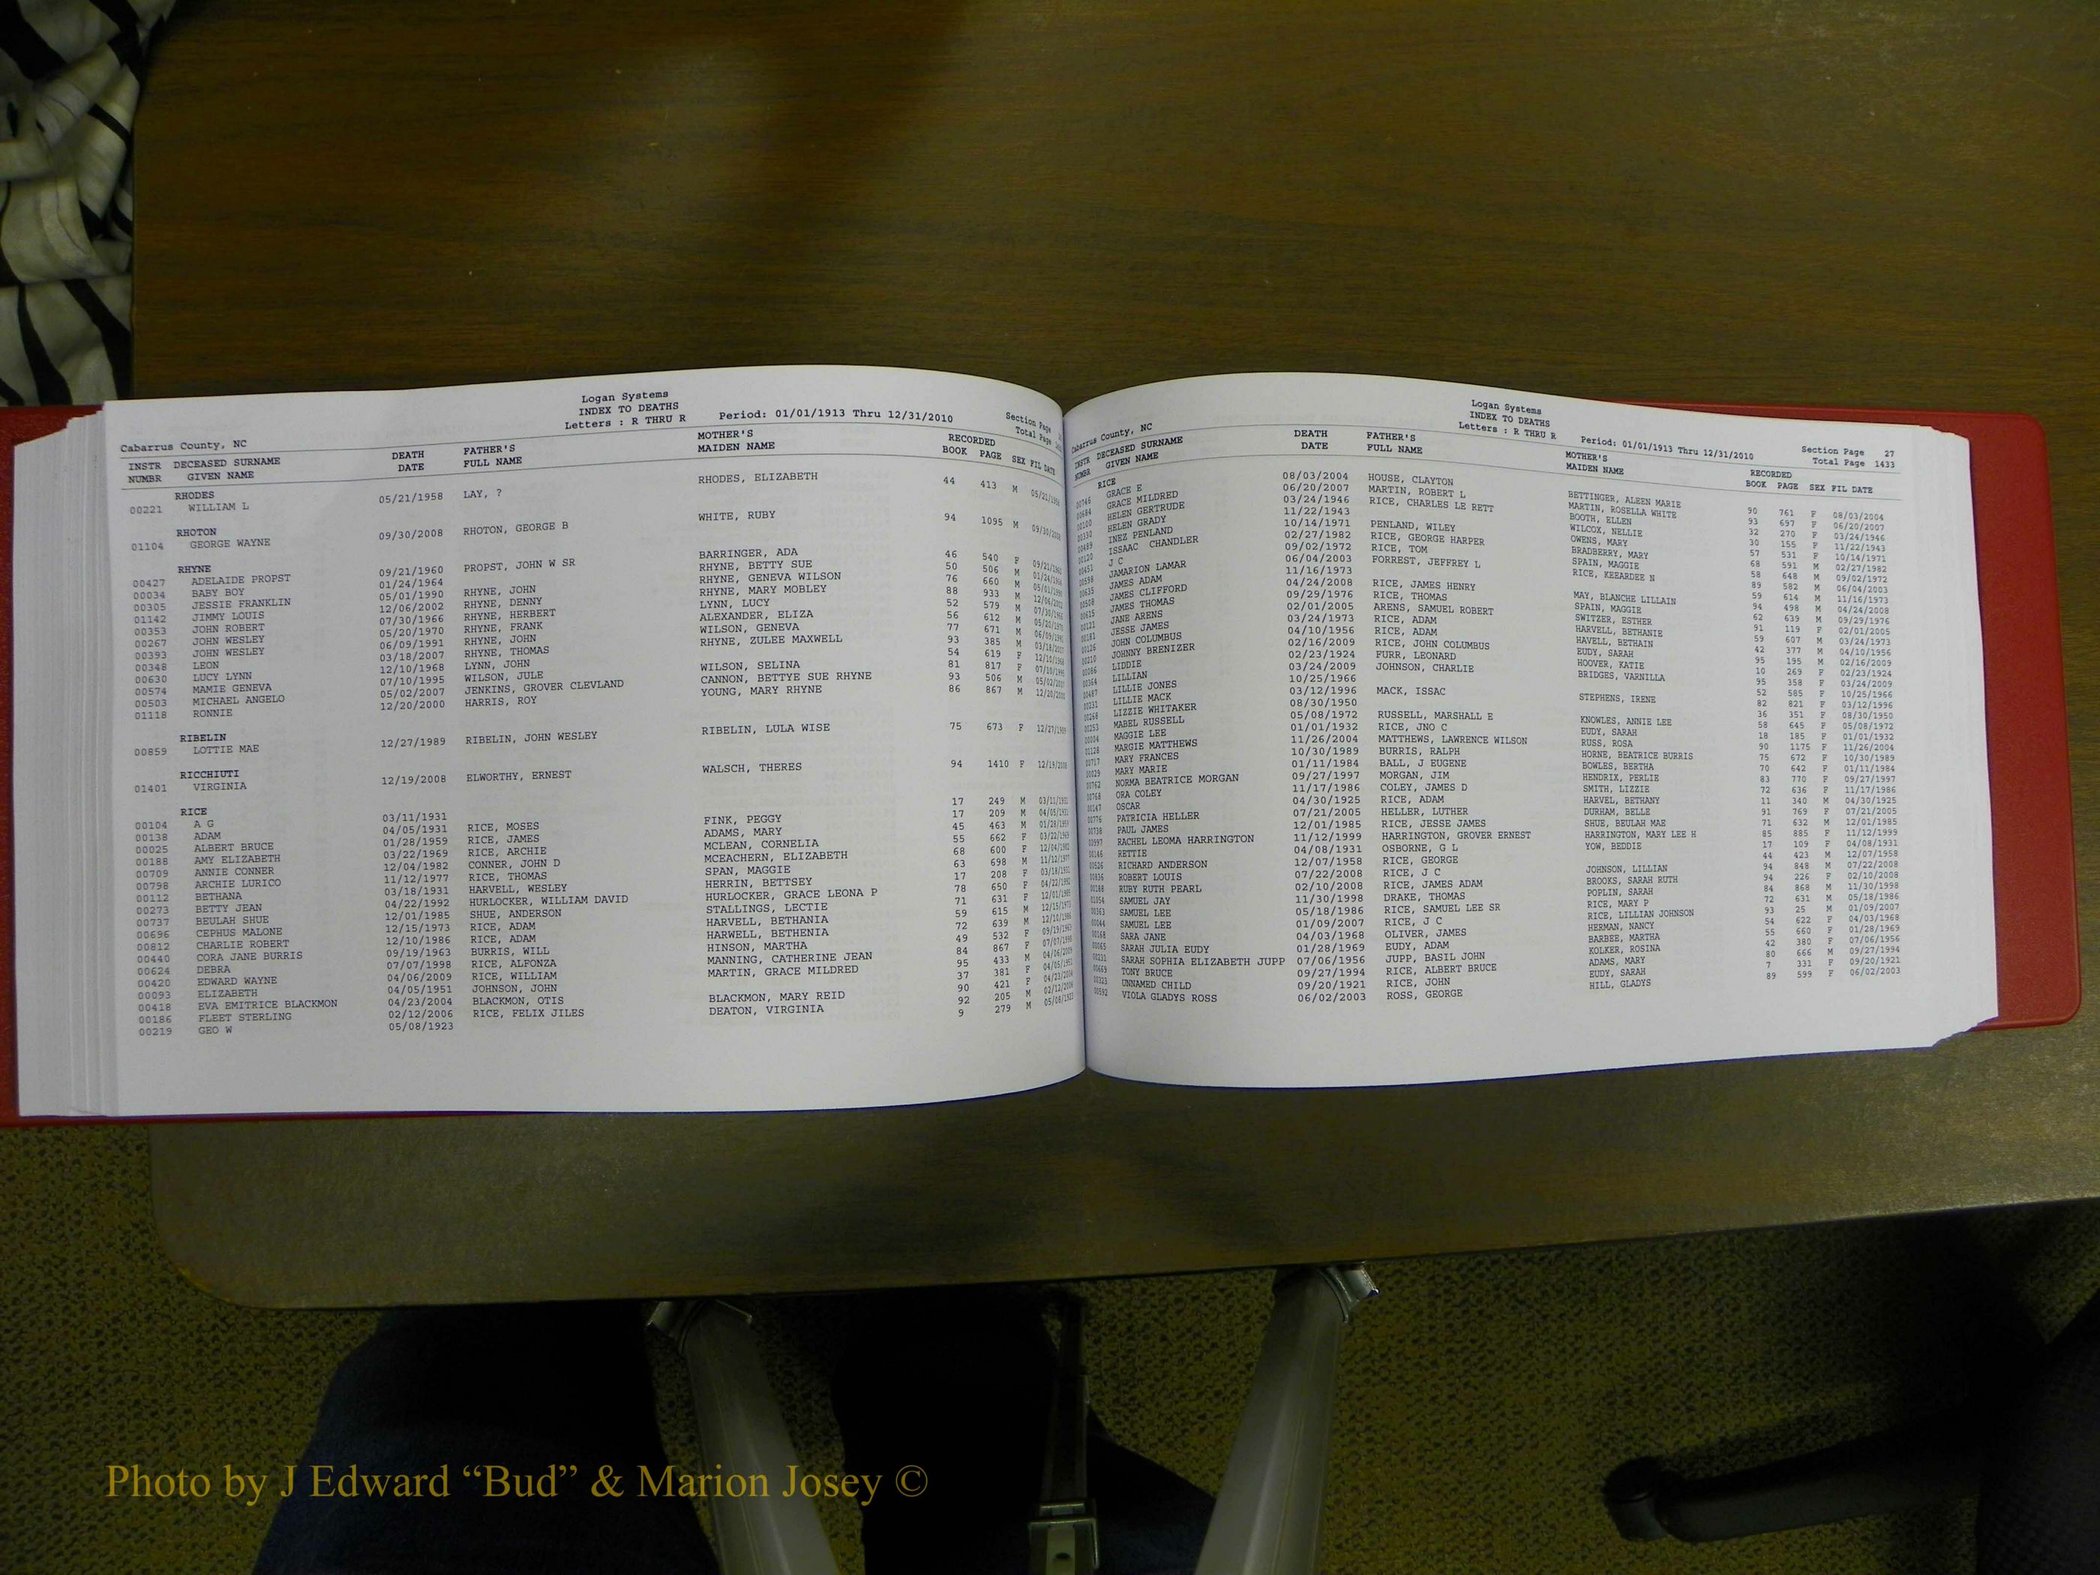 Logan Systems
INDEX TO DEATHS
Letters : R THRU R Period: 01/01/1913 Thru 12/31/2010 Section Page
Cabarrus County, NC Total Page
INSTR DECEASED SURNAME DEATH FATHER'S MOTHER'S RECORDED
NUMBR GIVEN NAME DATE FULL NAME MAIDEN NAME BOOK PAGE SEX FIL DATE
RHODES
00221 WILLIAM L 05/21/1958 LAY, ? RHODES, ELIZABETH 44 413 M 05/21/1958
RHOTON
01104 GEORGE WAYNE 09/30/2008 RHOTON, GEORGE B WHITE, RUBY 94 1095 M 09/30/2008
RHYNE
00427 ADELAIDE PROPST 09/21/1960 PROPST, JOHN W SR BARRINGER, ADA 46 540 F 09/21/1960
00034 BABY BOY 01/24/1964 RHYNE, BETTY SUE 50 506 M 01/24/1964
00305 JESSIE FRANKLIN 05/01/1990 RHYNE, JOHN RHYNE, GENEVA WILSON 76 660 M 05/01/1990
01142 JIMMY LOUIS 12/06/2002 RHYNE, DENNY RHYNE, MARY MOBLEY 88 933 M 12/06/2002
00353 JOHN ROBERT 07/30/1966 RHYNE, HERBERT LYNN, LUCY 52 579 M 07/30/1966
00267 JOHN WESLEY 05/20/1970 RHYNE, FRANK ALEXANDER, ELIZA 56 612 M 05/20/1970
00393 JOHN WESLEY 06/09/1991 RHYNE, JOHN WILSON, GENEVA 77 671 M 06/09/1991
00348 LEON 03/18/2007 RHYNE, THOMAS RHYNE, ZULEE MAXWELL 93 385 M 03/18/2007
00630 LUCY LYNN 12/10/1968 LYNN, JOHN 54 619 F 12/10/1968
00574 MAMIE GENEVA 07/10/1995 WILSON, JULE WILSON, SELINA 81 817 F 07/10/1995
00503 MICHAEL ANGELO 05/02/2007 JENKINS, GROVER CLEVLAND CANNON, BETTYE SUE RHYNE 93 506 M 05/02/2007
01118 RONNIE 12/20/2000 HARRIS, ROY YOUNG, MARY RHYNE 86 867 M 12/20/2000
RIBELIN
00859 LOTTIE MAE 12/27/1989 RIBELIN, JOHN WESLEY RIBELIN, LULA WISE 75 673 F 12/27/1989
RICCHIUTI
01401 VIRGINIA 12/19/2008 ELWORTHY, ERNEST WALSCH, THERES 94 1410 F 12/19/2008
RICE
00104 A G 03/11/1931 17 249 M 03/11/1931
00138 ADAM 04/05/1931 RICE, MOSES FINK, PEGGY 17 209 M 04/05/1931
00025 ALBERT BRUCE 01/28/1959 RICE, JAMES ADAMS, MARY 45 463 M 01/28/1959
00188 AMY ELIZABETH 03/22/1969 RICE, ARCHIE MCLEAN, CORNELIA 55 662 F 03/22/1969
00709 ANNIE CONNER 12/04/1982 CONNER, JOHN D MCEACHERN, ELIZABETH 68 600 F 12/04/1982
00798 ARCHIE LURICO 11/12/1977 RICE, THOMAS SPAN, MAGGIE 63 698 M 11/12/1977
00112 BETHANA 03/18/1931 HARVELL, WESLEY HERRIN, BETTSEY 17 208 F 03/18/1931
00273 BETTY JEAN 04/22/1992 HURLOCKER, WILLIAM DAVID HURLOCKER, GRACE LEONA P 78 650 F 04/22/1992
00737 BEULAH SHUE 12/01/1985 SHUE, ANDERSON STALLINGS, LECTIE 71 631 F 12/01/1985
00696 CEPHUS MALONE 12/15/1973 RICE, ADAM HARVELL, BETHANIA 59 615 M 12/15/1973
00812 CHARLIE ROBERT 12/10/1986 RICE, ADAM HARWELL, BETHENIA 72 639 M 12/10/1986
00440 CORA JANE BURRIS 09/19/1963 BURRIS, WILL HINSON, MARTHA 49 532 F 09/19/1963
00624 DEBRA 07/07/1998 RICE, ALFONZA MANNING, CATHERINE JEAN 84 867 F 07/07/1998
00420 EDWARD WAYNE 04/06/2009 RICE, WILLIAM MARTIN, GRACE MILDRED 95 433 M 04/06/2009
00093 ELIZABETH 04/05/1951 JOHNSON, JOHN 37 381 F 04/05/1951
00418 EVA EMITRICE BLACKMON 04/23/2004 BLACKMON, OTIS BLACKMON, MARY REID 90 421 F 04/23/2004
00186 FLEET STERLING 02/12/2006 RICE, FELIX JILES DEATON, VIRGINIA 92 205 M 02/12/2006
00219 GEO W 05/08/1923 9 279 M 05/08/1923
Logan Systems
INDEX TO DEATHS
Letters : R THRU R Period: 01/01/1913 Thru 12/31/2010 Section Page 27
Cabarrus County, NC Total Page 1433
INSTR DECEASED SURNAME DEATH FATHER'S MOTHER'S RECORDED
NUMBR GIVEN NAME DATE FULL NAME MAIDEN NAME BOOK PAGE SEX FIL DATE
RICE
00746 GRACE E 08/03/2004 HOUSE, CLAYTON BETTINGER, ALEEN MARIE 90 761 F 08/03/2004
00684 GRACE MILDRED 06/20/2007 MARTIN, ROBERT L MARTIN, ROSELLA WHITE 93 697 F 06/20/2007
00100 HELEN GERTRUDE 03/24/1946 RICE, CHARLES LE RETT BOOTH, ELLEN 32 270 F 03/24/1946
00330 HELEN GRADY 11/22/1943 WILCOX, NELLIE 30 155 F 11/22/1943
00489 INEZ PENLAND 10/14/1971 PENLAND, WILEY OWENS, MARY 57 531 F 10/14/1971
00120 ISSAAC CHANDLER 02/27/1982 RICE, GEORGE HARPER BRADBERRY, MARY 68 591 M 02/27/1982
00451 J C 09/02/1972 RICE, TOM SPAIN, MAGGIE 58 648 M 09/02/1972
00598 JAMARION LAMAR 06/04/2003 FORREST, JEFFREY L RICE, KEEARDEE N 89 582 M 06/04/2003
00635 JAMES ADAM 11/16/1973 59 614 M 11/16/1973
00508 JAMES CLIFFORD 04/24/2008 RICE, JAMES HENRY MAY, BLANCHE LILLAIN 94 498 M 04/24/2008
00615 JAMES THOMAS 09/29/1976 RICE, THOMAS SPAIN, MAGGIE 62 639 M 09/29/1976
00121 JANE ARENS 02/01/2005 ARENS, SAMUEL ROBERT SWITZER, ESTHER 91 119 F 02/01/2005
00181 JESSE JAMES 03/24/1973 RICE, ADAM HARVELL, BETHANIE 59 607 M 03/24/1973
00126 JOHN COLUMBUS 04/10/1956 RICE, ADAM HAVELL, BETHAIN 42 377 M 04/10/1956
00210 JOHNNY BRENIZER 02/16/2009 RICE, JOHN COLUMBUS EUDY, SARAH 95 195 M 02/16/2009
00086 LIDDIE 02/23/1924 FURR, LEONARD HOOVER, KATIE 10 269 F 02/23/1924
00364 LILLIAN 03/24/2009 JOHNSON, CHARLIE BRIDGES, VARNILLA 95 358 F 03/24/2009
00487 LILLIE JONES 10/25/1966 52 585 F 10/25/1966
00231 LILLIE MACK 03/12/1996 MACK, ISSAC STEPHENS, IRENE 82 821 F 03/12/1996
00268 LIZZIE WHITAKER 08/30/1950 36 351 F 08/30/1950
00253 MABEL RUSSELL 05/08/1972 RUSSELL, MARSHALL E KNOWLES, ANNIE LEE 58 645 F 05/08/1972
00004 MAGGIE LEE 01/01/1932 RICE, JNO C EUDY, SARAH 18 185 F 01/01/1932
01128 MARGIE MATTHEWS 11/26/2004 MATTHEWS, LAWRENCE WILSON RUSS, ROSA 90 1175 F 11/26/2004
00717 MARY FRANCES 10/30/1989 BURRIS, RALPH HORNE, BEATRICE BURRIS 75 672 F 10/30/1989
00029 MARY MARIE 01/11/1984 BALL, J EUGENE BOWLES, BERTHA 70 642 F 01/11/1984
00762 NORMA BEATRICE MORGAN 09/27/1997 MORGAN, JIM HENDRIX, PERLIE 83 770 F 09/27/1997
00768 ORA COLEY 11/17/1986 COLEY, JAMES D SMITH, LIZZIE 72 636 F 11/17/1986
00147 OSCAR 04/30/1925 RICE, ADAM HARVEL, BETHANY 11 340 M 04/30/1925
00776 PATRICIA HELLER 07/21/2005 HELLER, LUTHER DURHAM, BELLE 91 769 F 07/21/2005
00738 PAUL JAMES 12/01/1985 RICE, JESSE JAMES SHUE, BEULAH MAE 71 632 M 12/01/1985
00997 RACHEL LEOMA HARRINGTON 11/12/1999 HARRINGTON, GROVER ERNEST HARRINGTON, MARY LEE H 85 885 F 11/12/1999
00146 RETTIE 04/08/1931 OSBORNE, G L YOW, BEDDIE 17 109 F 04/08/1931
00526 RICHARD ANDERSON 12/07/1958 RICE, GEORGE 44 423 M 12/07/1958
00836 ROBERT LOUIS 07/22/2008 RICE, J C JOHNSON, LILLIAN 94 848 M 07/22/2008
00188 RUBY RUTH PEARL 02/10/2008 RICE, JAMES ADAM BROOKS, SARAH RUTH 94 226 F 02/10/2008
01054 SAMUEL JAY 11/30/1998 DRAKE, THOMAS POPLIN, SARAH 84 868 M 11/30/1998
00363 SAMUEL LEE 05/18/1986 RICE, SAMUEL LEE SR RICE, MARY P 72 631 M 05/18/1986
00044 SAMUEL LEE 01/09/2007 RICE, J C RICE, LILLIAN JOHNSON 93 25 M 01/09/2007
00168 SARA JANE 04/03/1968 OLIVER, JAMES HERMAN, NANCY 54 622 F 04/03/1968
00065 SARAH JULIA EUDY 01/28/1969 EUDY, ADAM BARBEE, MARTHA 55 660 F 01/28/1969
00231 SARAH SOPHIA ELIZABETH JUPP 07/06/1956 JUPP, BASIL JOHN KOLKER, ROSINA 42 380 F 07/06/1956
00669 TONY BRUCE 09/27/1994 RICE, ALBERT BRUCE ADAMS, MARY 80 666 M 09/27/1994
00323 UNNAMED CHILD 09/20/1921 RICE, JOHN EUDY, SARAH 7 331 F 09/20/1921
00592 VIOLA GLADYS ROSS 06/02/2003 ROSS, GEORGE HILL, GLADYS 89 599 F 06/02/2003
Photo by J Edward “Bud” & Marion Josey ©